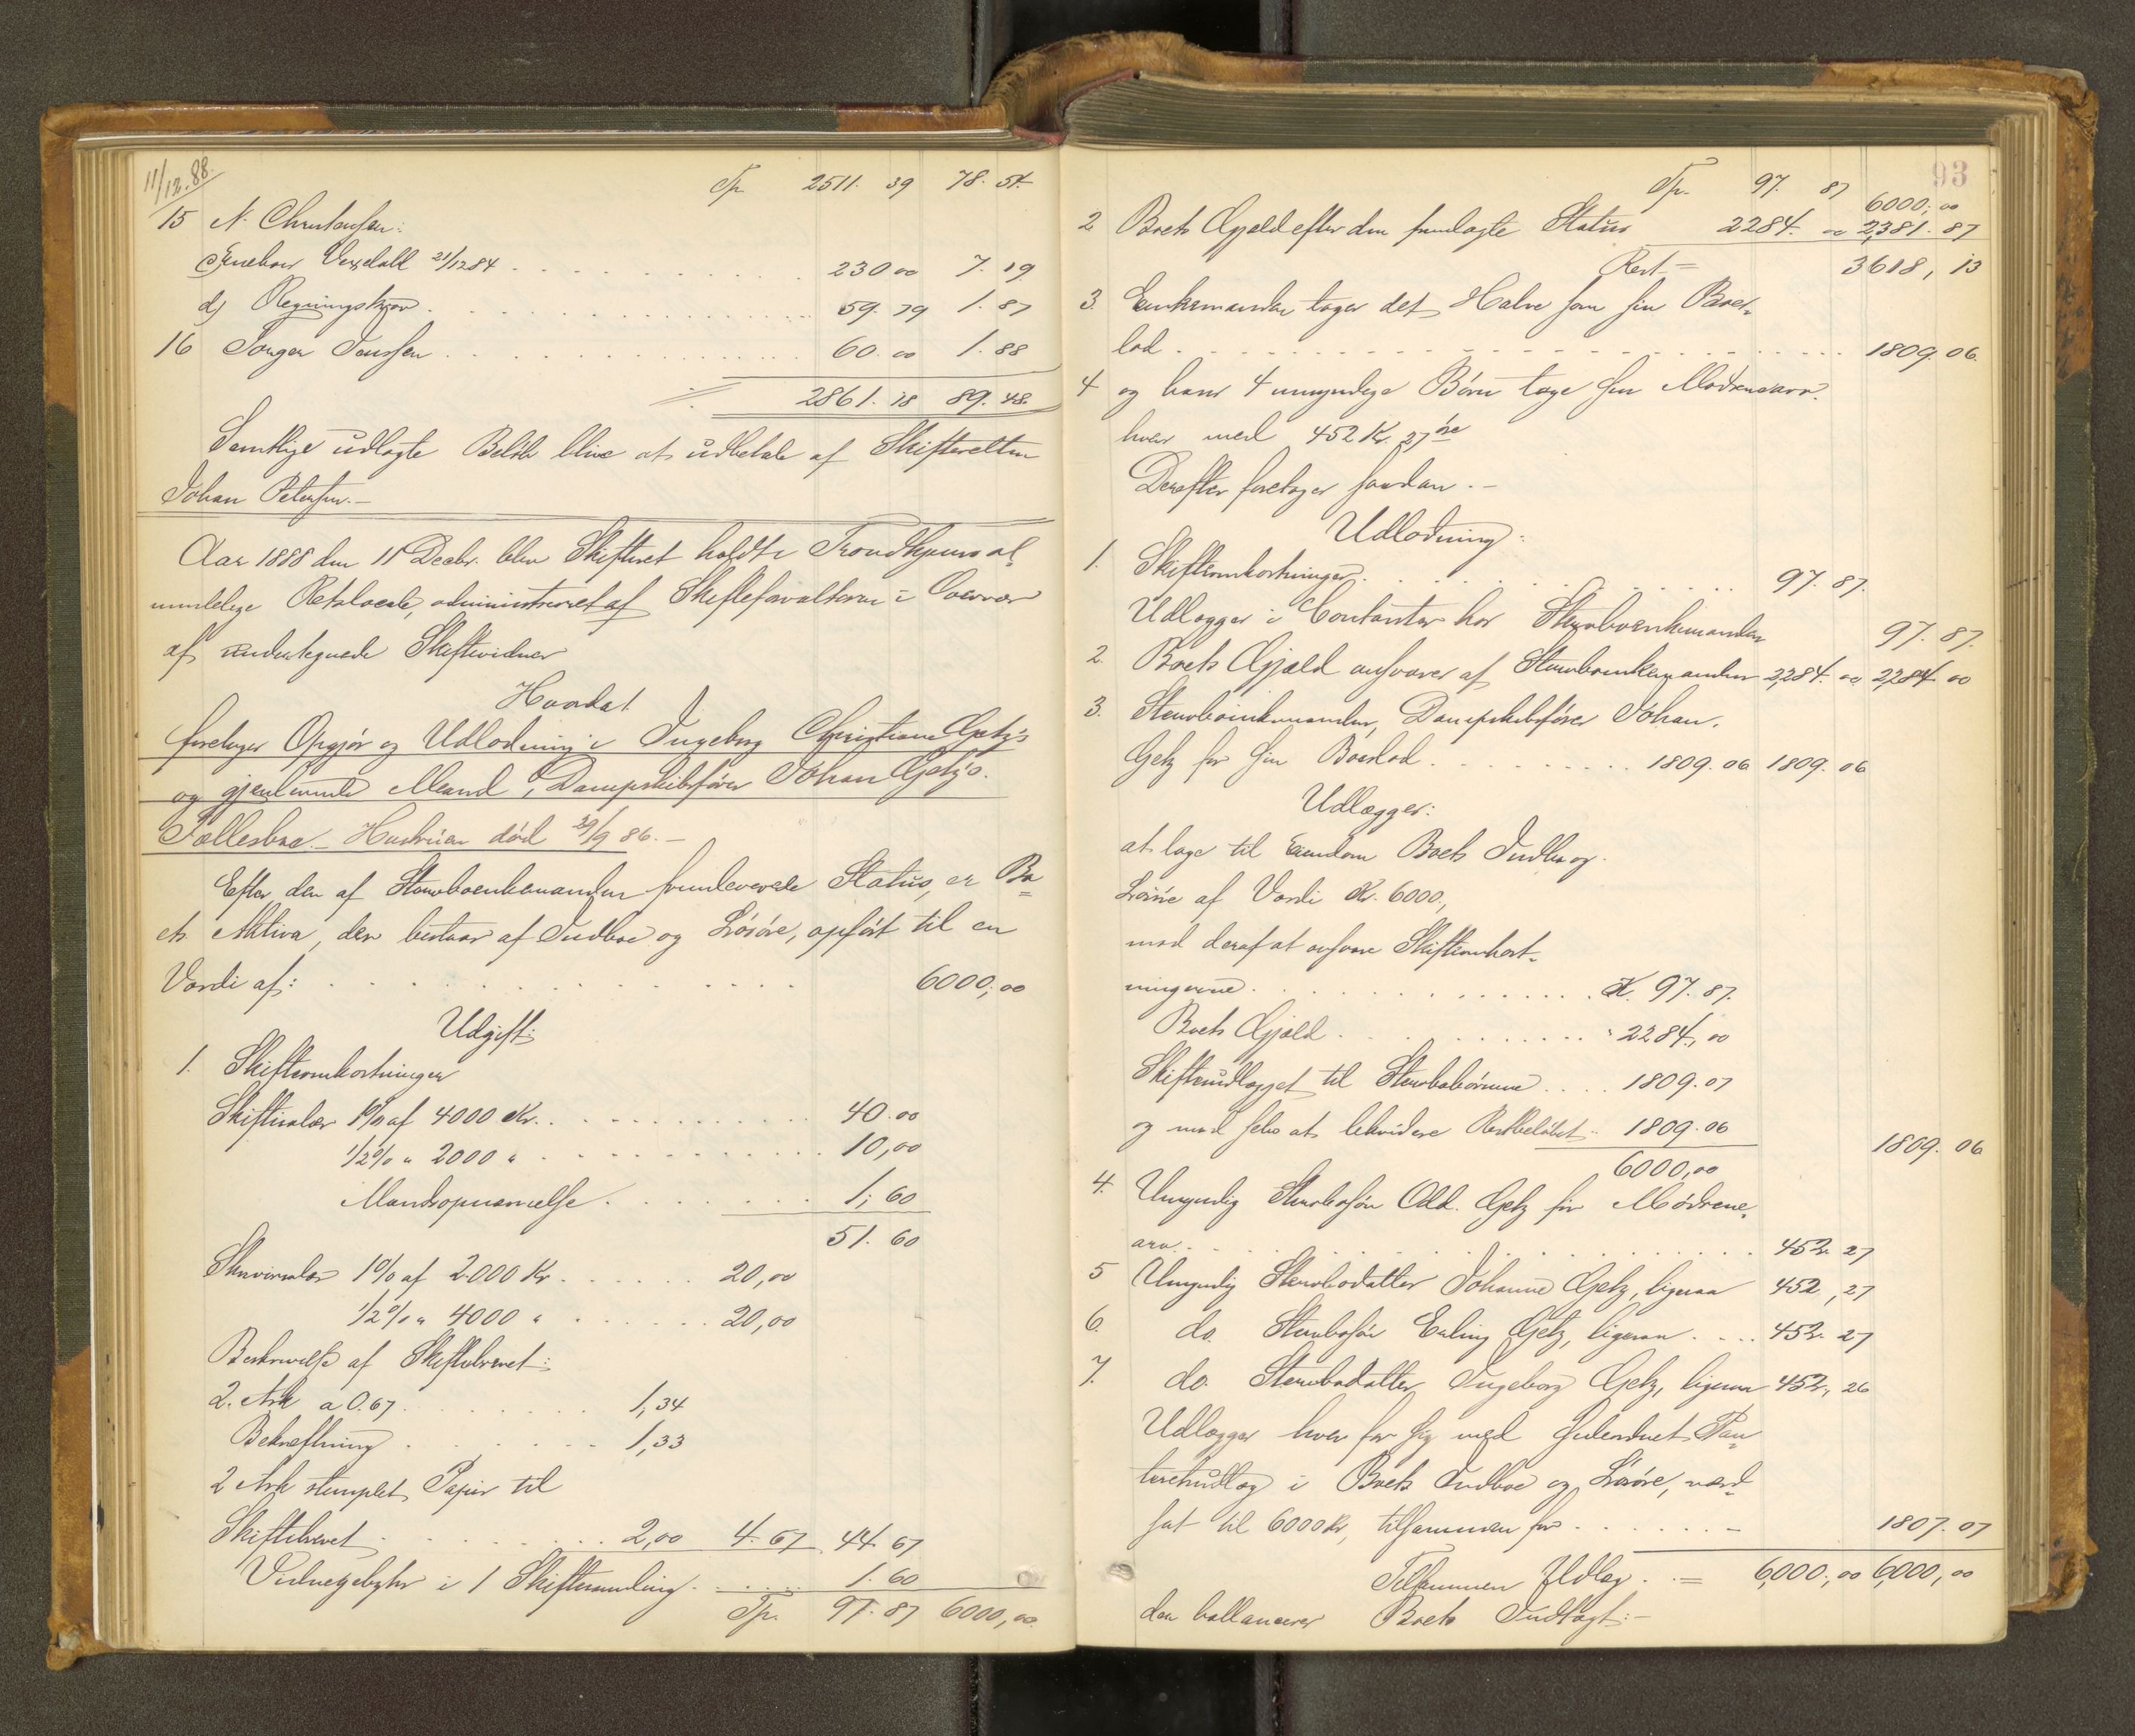 11/12.88.
Tp. 2511. 39 78. 54.
15 N. Christensen:
c) Vexelobl 21/12 84 . . . 230 00 7. 19
d) Regningskrav . . . 59. 79 1. 87
16 Jørgen Jenssen . . . 60. 00 1. 88
2861. 18 89. 48.
Samtlige udlagte Beløb blive at udbetale af Skifteretten
Johan Petersen. —
Aar 1888 den 11 Decbr. blev Skifteret holdt i Trondhjems al-
mindelige Retslocale, administreret af Skifteforvalteren i Overvær
af undertegnede Skiftevidner
Hvorda!
foretoges Opgjør og Udlodning i Ingeborg Christiane Getz's
og gjenlevende Mand, Dampskibsfører Johan Getz's.
Fællesboe. — Hustruen død 29/9 86. —
Efter den af Stervboenkemanden fremleverede Status, er Bo-
ets Aktiva, der bestaar af Indboe og Løsøre, opført til en
Værdi af: . . . 6000,00
Udgift:
1. Skifteomkostninger
Skiftesalær 1% af 4000 Kr. . . . 40.00
1/2 % " 2000 " . . . 10,00
Mandsopnævnelse . . . 1,60
51. 60
Skriversalær 1% af 2000 Kr . . . 20,00
1/2 % " 4000 " . . . 20,00
Beskrivelse af Skiftebrevet:
2. Ark a 0.67 . . . 1,34
Bekræftning . . . 1,33
2 Ark stemplet Papir til
Skiftebrevet . . . 2,00 4. 67 44. 67
Vidnegebyhr i 1 Skiftesamling . . . 1. 60
Tp. 97. 87 6000,00.
93
Tp. 97. 87 6000,00
2 Boets Gjæld efter den fremlagte Status 2284. 00 2,381. 87
Rest = 3618, 13
3. Enkemanden tager det Halve som sin Boes-
lod . . . 1809. 06.
4 og hans 4 umyndige Børn tage sin Mødrenearv.
hver med 452 Kr. 27 øre
Derefter foretoges saadan. —
Udlodning:
1. Skifteomkostninger . . . 97. 87.
Udlægges i Contanter hos Stervboenkemanden 97. 87.
2. Boets Gjæld ansvares af Stervboenkemanden 2,284. 00 2,284. 00
3. Stervboenkemanden, Dampskibsfører Johan.
Getz for sin Boeslod . . . 1809. 06 1809. 06
Udlægges:
at tage til Eiendom Boets Indbo og
Løsøre af Værdi Kr. 6000,
mod deraf at ansvare Skifteomkost-
ningerne . . . Kr. 97. 87.
Boets Gjæld . . . " 2284,00
Skifteudlægget til Stervbobørnene . . . 1809. 07
og mod selv at lekvidere Restbeløbet 1809. 06 1809. 06
6000,00
4. Umyndig Stervbosøn Old. Getz for Mødrene-
arv . . . 452. 27
5 Umyndig Stervbodatter Johanne Getz, ligesaa 452, 27
6. do. Stervbosøn Erling Getz, ligesaa . . . 452. 27
7. do. Stervbodatter Ingeborg Getz, ligesaa 452, 26
Udlægges hver for sig med sideordnet Pan-
terettsudlæg i Boets Indboe og Løsøre, værd-
sat til 6000 Kr, tilsammen for . . . 1807. 07
Tilsammen Udlæg . = 6,000,00 6,000,00
der ballancerer Boets Indtægt: —